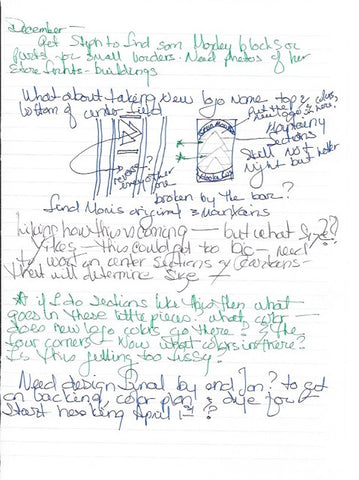 December—
Get Steph to find som Morley blocks or
quilts for small borders. Need photos of her
store fronts - buildings
What about taking New logo name top &
bottom of center field
Put the colors,
new logo is here.
Mapleberry
sections
Still not
right but better
reverse
every other
one
?
broken by the box?
Find Mom's original mountains
liking how this is coming — but what size??
Yikes — this could get too big — need
to work on center sections & cartoons —
that will determine size
* if I do sections like this then what
goes in these little pieces? what color —
does new logo colors go there? & the
four corners — Now what colors in there?
Is this getting too fussy?
Need design final by end Jan? to get
on backing, color plan & dye for
Start hooking April 1st?